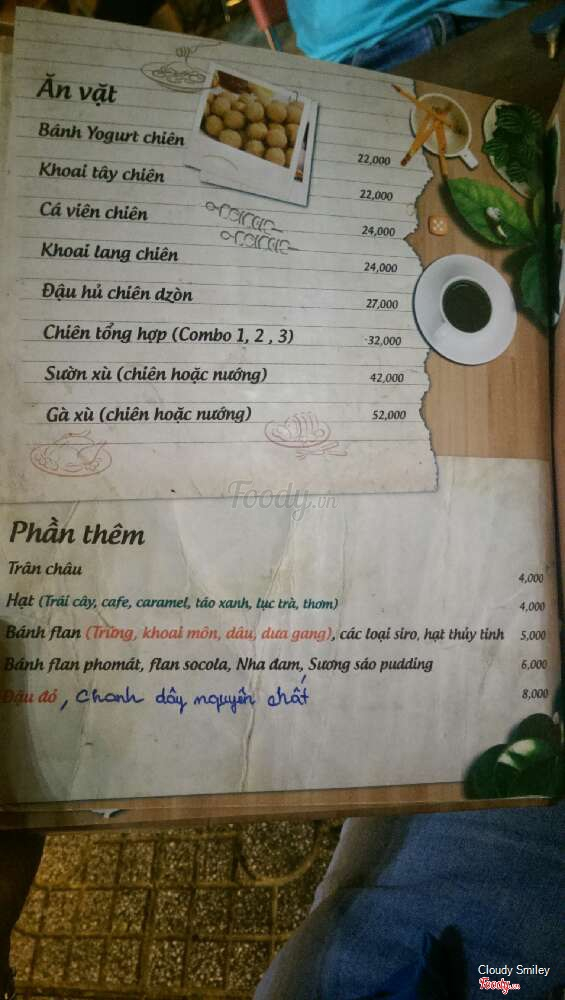 Ăn vặt
Bánh Yogurt chiên 22,000
Khoai tây chiên 22,000
Cá viên chiên 24,000
Khoai lang chiên 24,000
Đậu hủ chiên dzòn 27,000
Chiên tổng hợp (Combo 1, 2 , 3) 32,000
Sườn xù (chiên hoặc nướng) 42,000
Gà xù (chiên hoặc nướng) 52,000
Foody.vn
Phần thêm
Trân châu 4,000
Hạt (Trái cây, cafe, caramel, táo xanh, lục trà, thơm) 4,000
Bánh flan (Trứng, khoai môn, dâu, dưa gang), các loại siro, hạt thủy tinh 5,000
Bánh flan phomát, flan socola, Nha đam, Sương sáo pudding 6,000
Đậu đỏ, chanh dây nguyên chất 8,000
Cloudy Smiley
Foody.vn